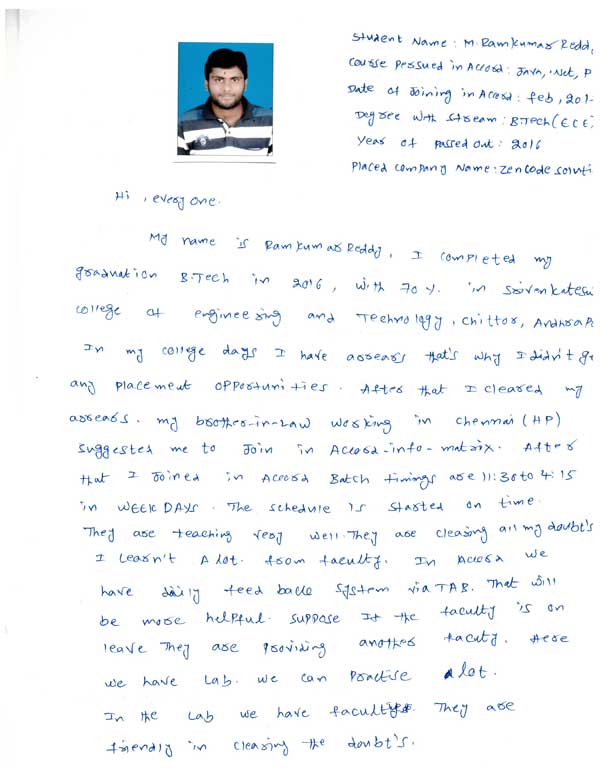 Student Name : M. Ramkumar Reddy,
Course Persued in Accord : Java, .Net, P
Date of Joining in Accord : Feb, 201
Degree with Stream : B.Tech (ECE)
Year of Passed Out : 2016
Placed Company Name : Zencode Soluti
Hi , every one.
My name is RamkumarReddy, I completed my
graduation B.Tech in 2016, with 70 %. in Srivenkatesw
college of engineering and Technology, Chittor, AndhraP
In my college days I have arrears that's why I didn't ge
any placement opportunities. After that I cleared my
arrears. my brother-in-Law working in Chennai (HP)
suggested me to Join in Accord-info-matrix. After
that I Joined in Accord Batch timings are 11:30 to 4:15
in WEEK DAYS. The schedule is started on time.
They are teaching very well. They are clearing all my doubt's
I Learn't A lot. from faculty. In Accord we
have daily feed back system via TAB. That will
be more helpful. suppose If the faculty is on
leave They are providing another faculty. Here
we have Lab. we can Practise A lot.
In the Lab we have faculty's. They are
friendly in clearing the doubt's.